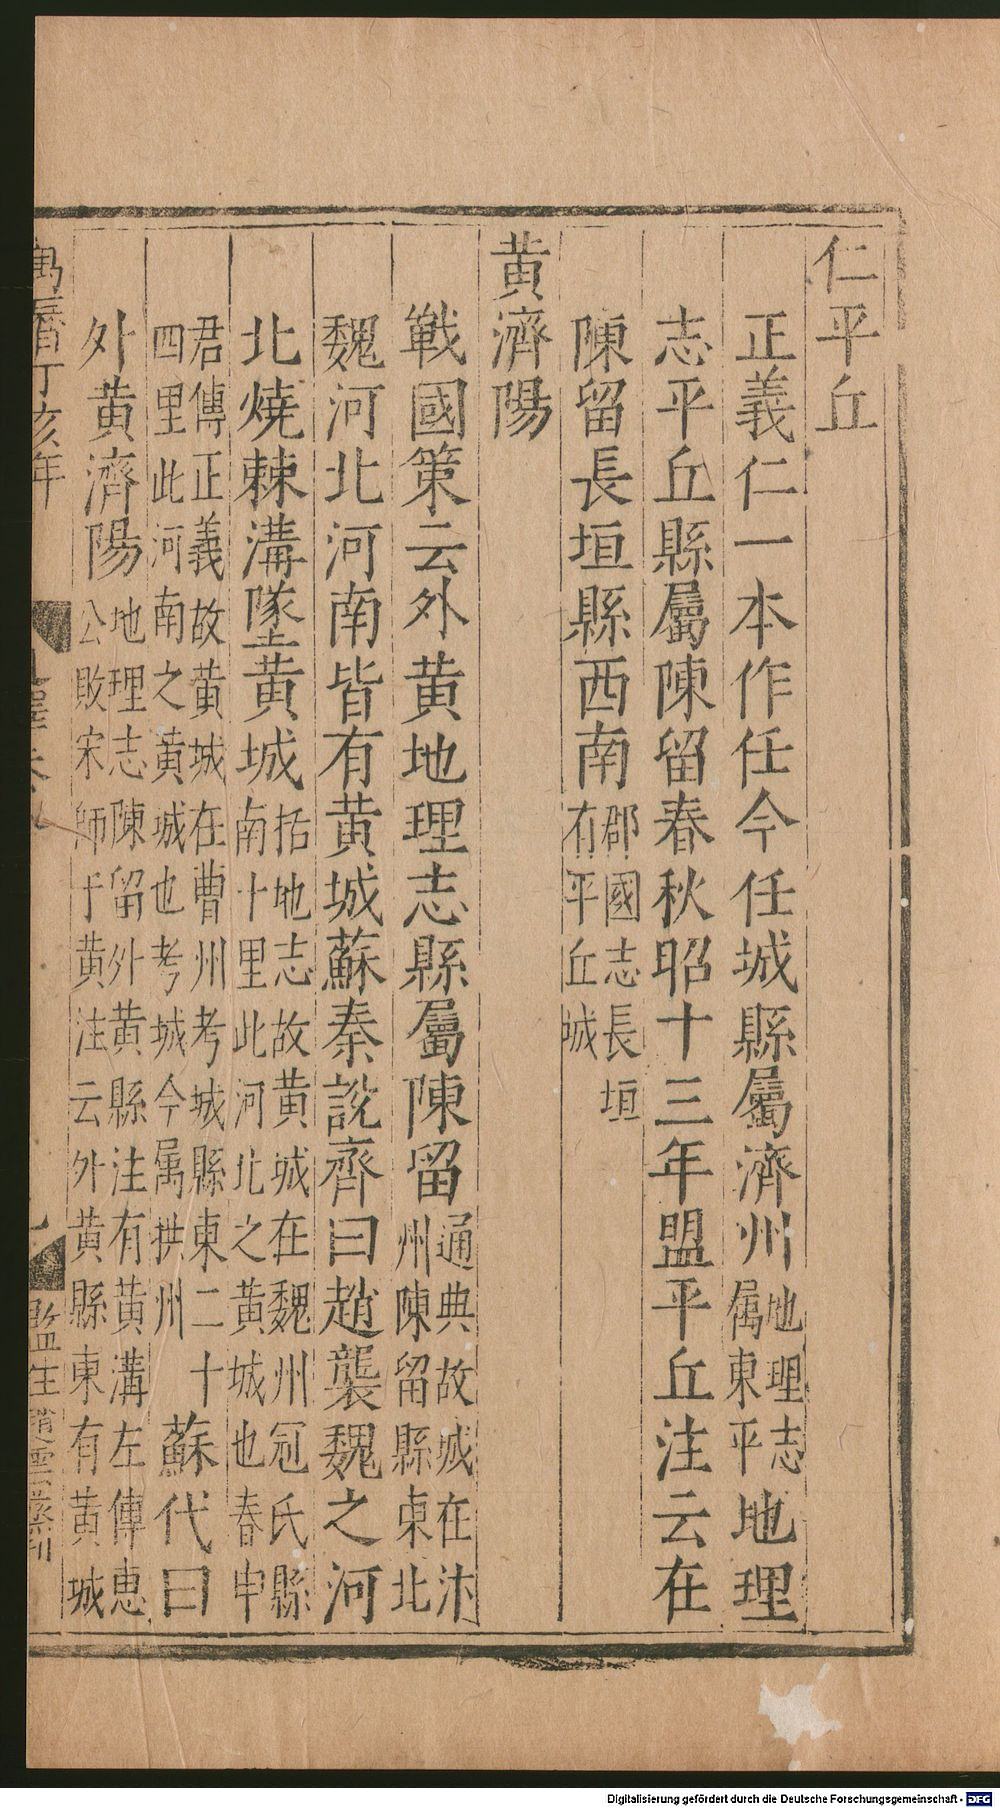 仁平丘
正義仁一本作任今任城縣屬濟州地理志屬東平地理
志平丘縣屬陳留春秋昭十三年盟平丘注云在
陳留長垣縣西南郡國志長垣有平丘城
黃濟陽
戰國策云外黃地理志縣屬陳留通典故城在汴州陳留縣東北
魏河北河南皆有黃城蘇秦說齊曰趙襲魏之河
北燒棘溝墜黃城括地志故黃城在魏州冠氏縣南十里此河北之黃城也春申
君傳正義故黃城在曹州考城縣東二十四里此河南之黃城也考城今属拱州蘇代曰
外黃濟陽地理志陳留外黃縣注有黃溝左傳惠公敗宋師于黃注云外黃縣東有黃城
萬曆丁亥年
監生
刊
Digitalisierung gefördert durch die Deutsche Forschungsgemeinschaft - DFG